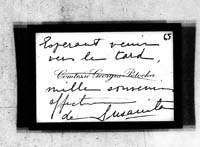 65
Esperant venir
vers le tard,
Comtesse Georges Potocka
mille souvenirs
affectueux
de Susanite